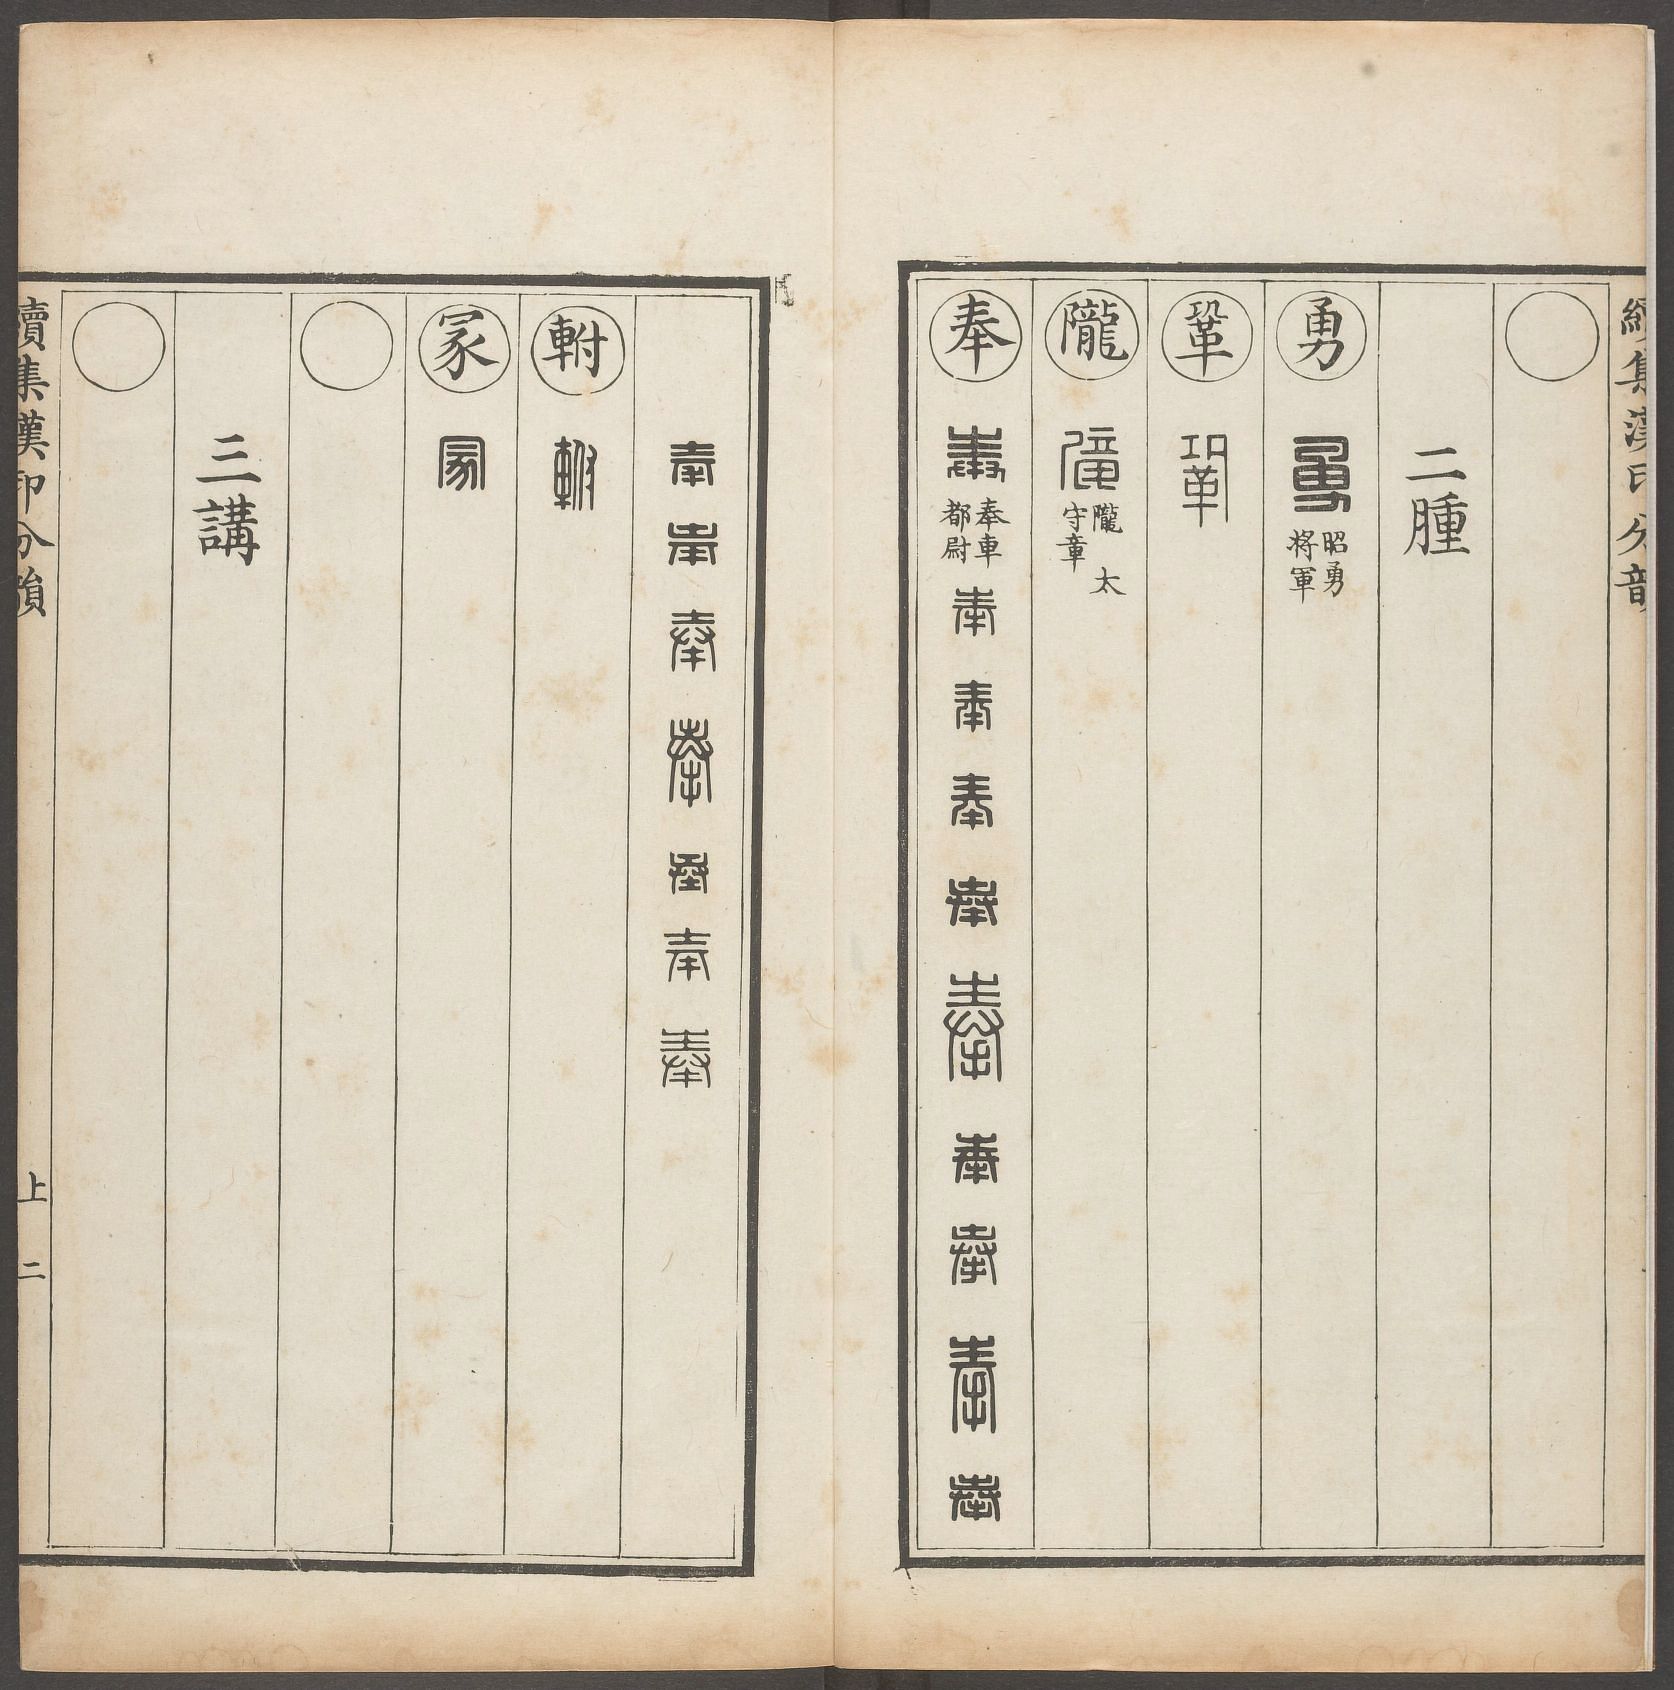 續集漢印分韻
二腫
勇 勇 昭勇將軍
鞏 鞏
隴 隴 隴 太守章
奉 奉 奉車都尉 奉 奉 奉 奉 奉 奉 奉 奉 奉
奉 奉 奉 奉 奉 奉 奉
軵 軵
冢 冢
三講
續集漢印分韻 上 二